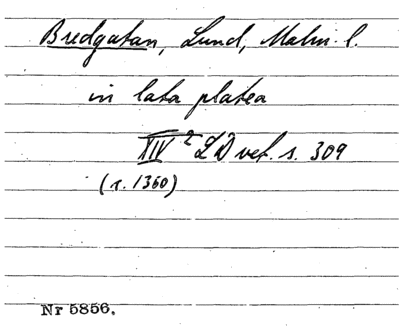 Bredgatan, Lund, Malm. l.
in lata platea
XIV 2 LD vet. s. 309
(r. 1360)
Nr 5856.